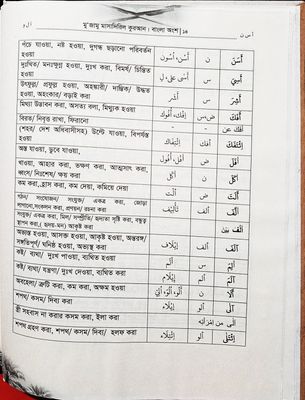 أ س ن
মু'জামু মাসাদিরিল কুরআন। বাংলা অংশ | ১৪
أ ل و
পঁচে যাওয়া, নষ্ট হওয়া, দুর্গন্ধ ছড়ানো পরিবর্তন হওয়া أَسْن، أُسُوْن ن أسن أَسَنَ
দুঃখিত/ মনঃক্ষুন্ন হওয়া, দুঃখ করা, বিমর্ষ/ চিন্তিত হওয়া أَسًى على، ل س
উৎফুল্ল/ প্রফুল্ল হওয়া, অহঙ্কারী/ দাম্ভিক/ উদ্ধত হওয়া, অহংকার/ বড়াই করা أَشَر س أشر أَشِرَ
মিথ্যা উদ্ভাবন করা, অসত্য বলা, মিথ্যুক হওয়া إِفْك، أُفُوْك ض،س أفك أَفَكَ
বিরত/নিবৃত্ত রাখা, ফিরানো أَفْك عن
(শহর/ দেশ অধিবাসীসহ) উল্টে যাওয়া, বিপর্যস্ত হওয়া اِئْتِفَاك أفك
অস্ত যাওয়া, ডুবে যাওয়া, أفل أَفَلَ
খাওয়া, আহার করা, ভক্ষণ করা, আত্মসাৎ করা, ধ্বংস/ নিঃশেষ/ ক্ষয় করা أَكْل ن أكل أَكَلَ
কম করা, হ্রাস করা, কম দেয়া, কমিয়ে দেয়া أَلْت ض ألت أَلَتَ
গঠন/ সংযোজন/ সংযুক্ত/ একত্র করা, জোড়া লাগানো, সংকলন করা, প্রণয়ন/ রচনা করা تَأْلِيْف ألف أَلَّفَ
সংযুক্ত/ একত্র করা, মিল/ সম্প্রীতি/ হৃদ্যতা সৃষ্টি করা, বন্ধুত্ব স্থাপন করা, ( হৃদয়-মন) আকৃষ্ট করা أَلَّفَ بين
অভ্যস্ত হওয়া, আসক্ত হওয়া, আকৃষ্ট হওয়া, অন্তরঙ্গ/ সঙ্গতিপূর্ণ/ ঘনিষ্ঠ হওয়া, অভ্যস্ত করা إِيْلَاف ألف آلَفَ
কষ্ট/ ব্যথা/ দুঃখ পাওয়া, ব্যথিত হওয়া أَلَم س ألم أَلِمَ
কষ্ট/ ব্যথা/ যন্ত্রণা/ দুঃখ দেওয়া, ব্যথিত করা إِيْلَام ألم آلَمَ
অবহেলা/ ত্রুটি করা, কম করা, অক্ষম হওয়া ن ألو أَلَا
শপথ/ কসম/ দিব্য করা إِيْلَاء ألو آلَى
স্ত্রী সহবাস না করার কসম করা, ইলা করা آلَى من امْرَأتِه
শপথ গ্রহণ করা, শপথ/ কসম/ দিব্য/ হলফ করা اِئْتِلَاء ألو